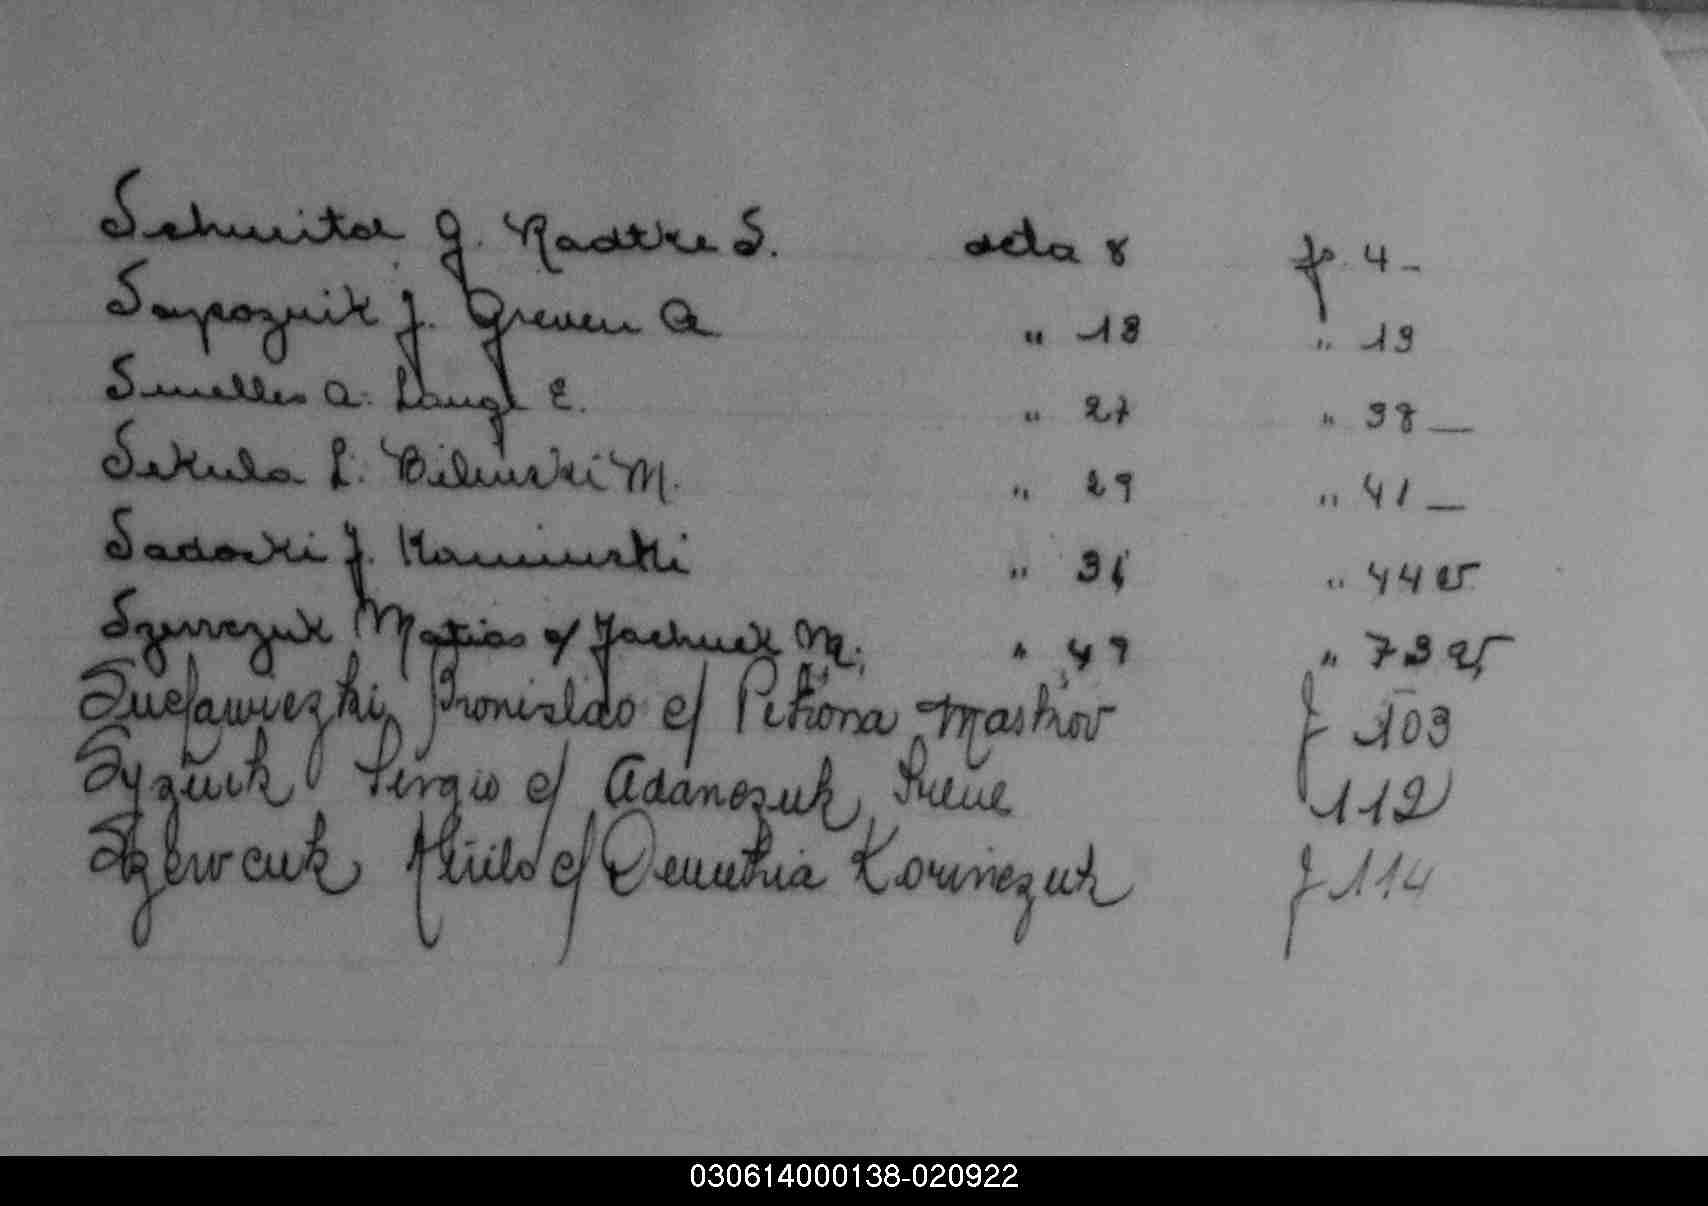 Schmitd G. Radtke S. acta 8 fo. 4 -
Sapoznik J. Greven A " 13 " 13
Smelles A. Lange E. " 27 " 38 —
Sekula L. Bilinski M. " 29 " 41 —
Sadoski J. Kaminski " 31 " 44 v
Szewczuk Matias c/ Jachuck M. " 49 " 73 v
Bronislao c/ Petrona Mastrov f 103
Syzuik Sergio c/ Adanczuk, Irene 112
Szewcuk c/ Demetria Korinczuk f 114
030614000138-020922